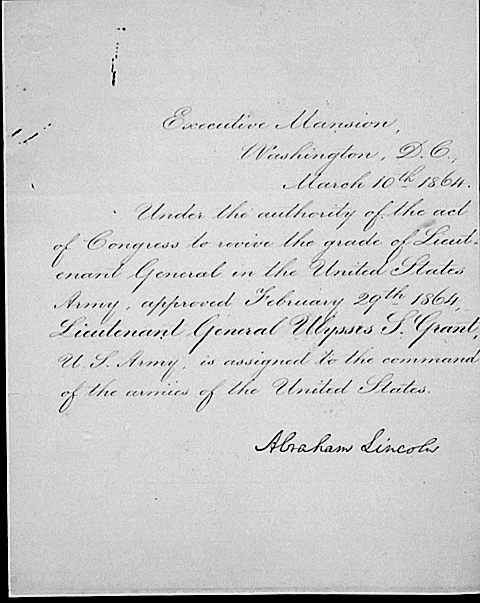 Executive Mansion,
Washington, D.C.,
March 10th 1864.
Under the authority of the act
of Congress to revive the grade of Lieut-
enant General in the United States
Army, approved February 29th 1864,
Lieutenant General Ulysses S. Grant,
U.S. Army, is assigned to the command
of the armies of the United States.
Abraham Lincoln